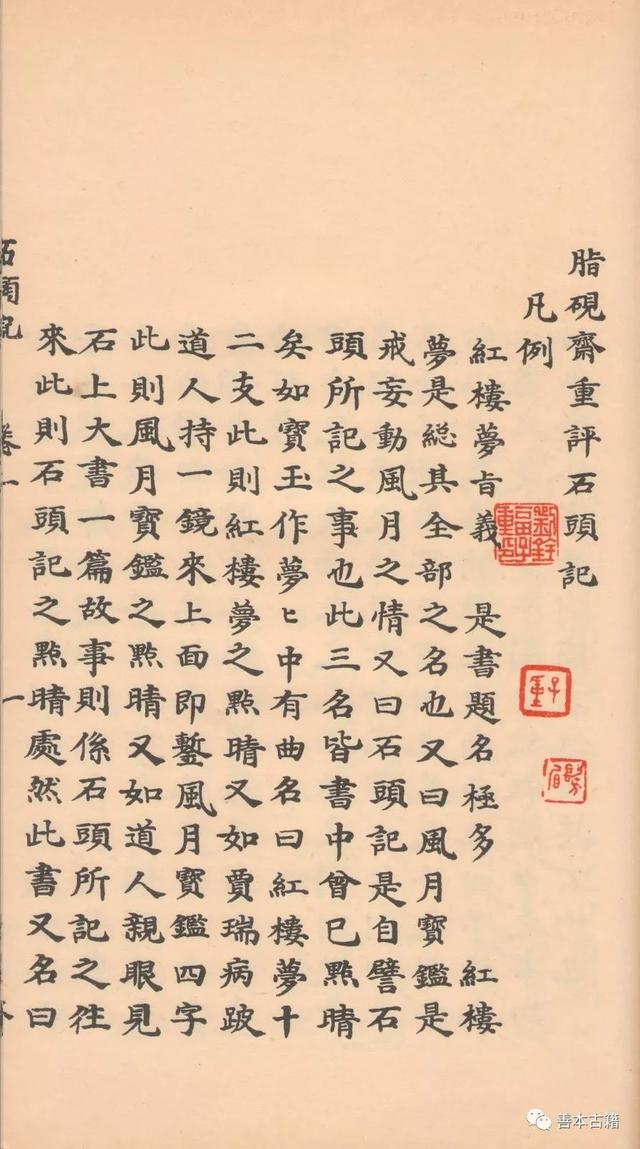 脂硯齋重評石頭記
凡例
紅樓夢旨義 是書題名極多 紅樓
夢是総其全部之名也又曰風月寶鑑是
戒妄動風月之情又曰石頭記是自譬石
頭所記之事也此三名皆書中曾已點晴
矣如寶玉作夢〻中有曲名曰紅樓夢十
二支此則紅樓夢之點晴又如賈瑞病跛
道人持一鏡來上面即鏨風月寶鑑四字
此則風月寶鑑之點晴又如道人親眼見
石上大書一篇故事則係石頭所記之往
來此則石頭記之點晴處然此書又名曰
石頭記 卷一 一
劉銓畐子重印
子重
髣眉
善本古籍